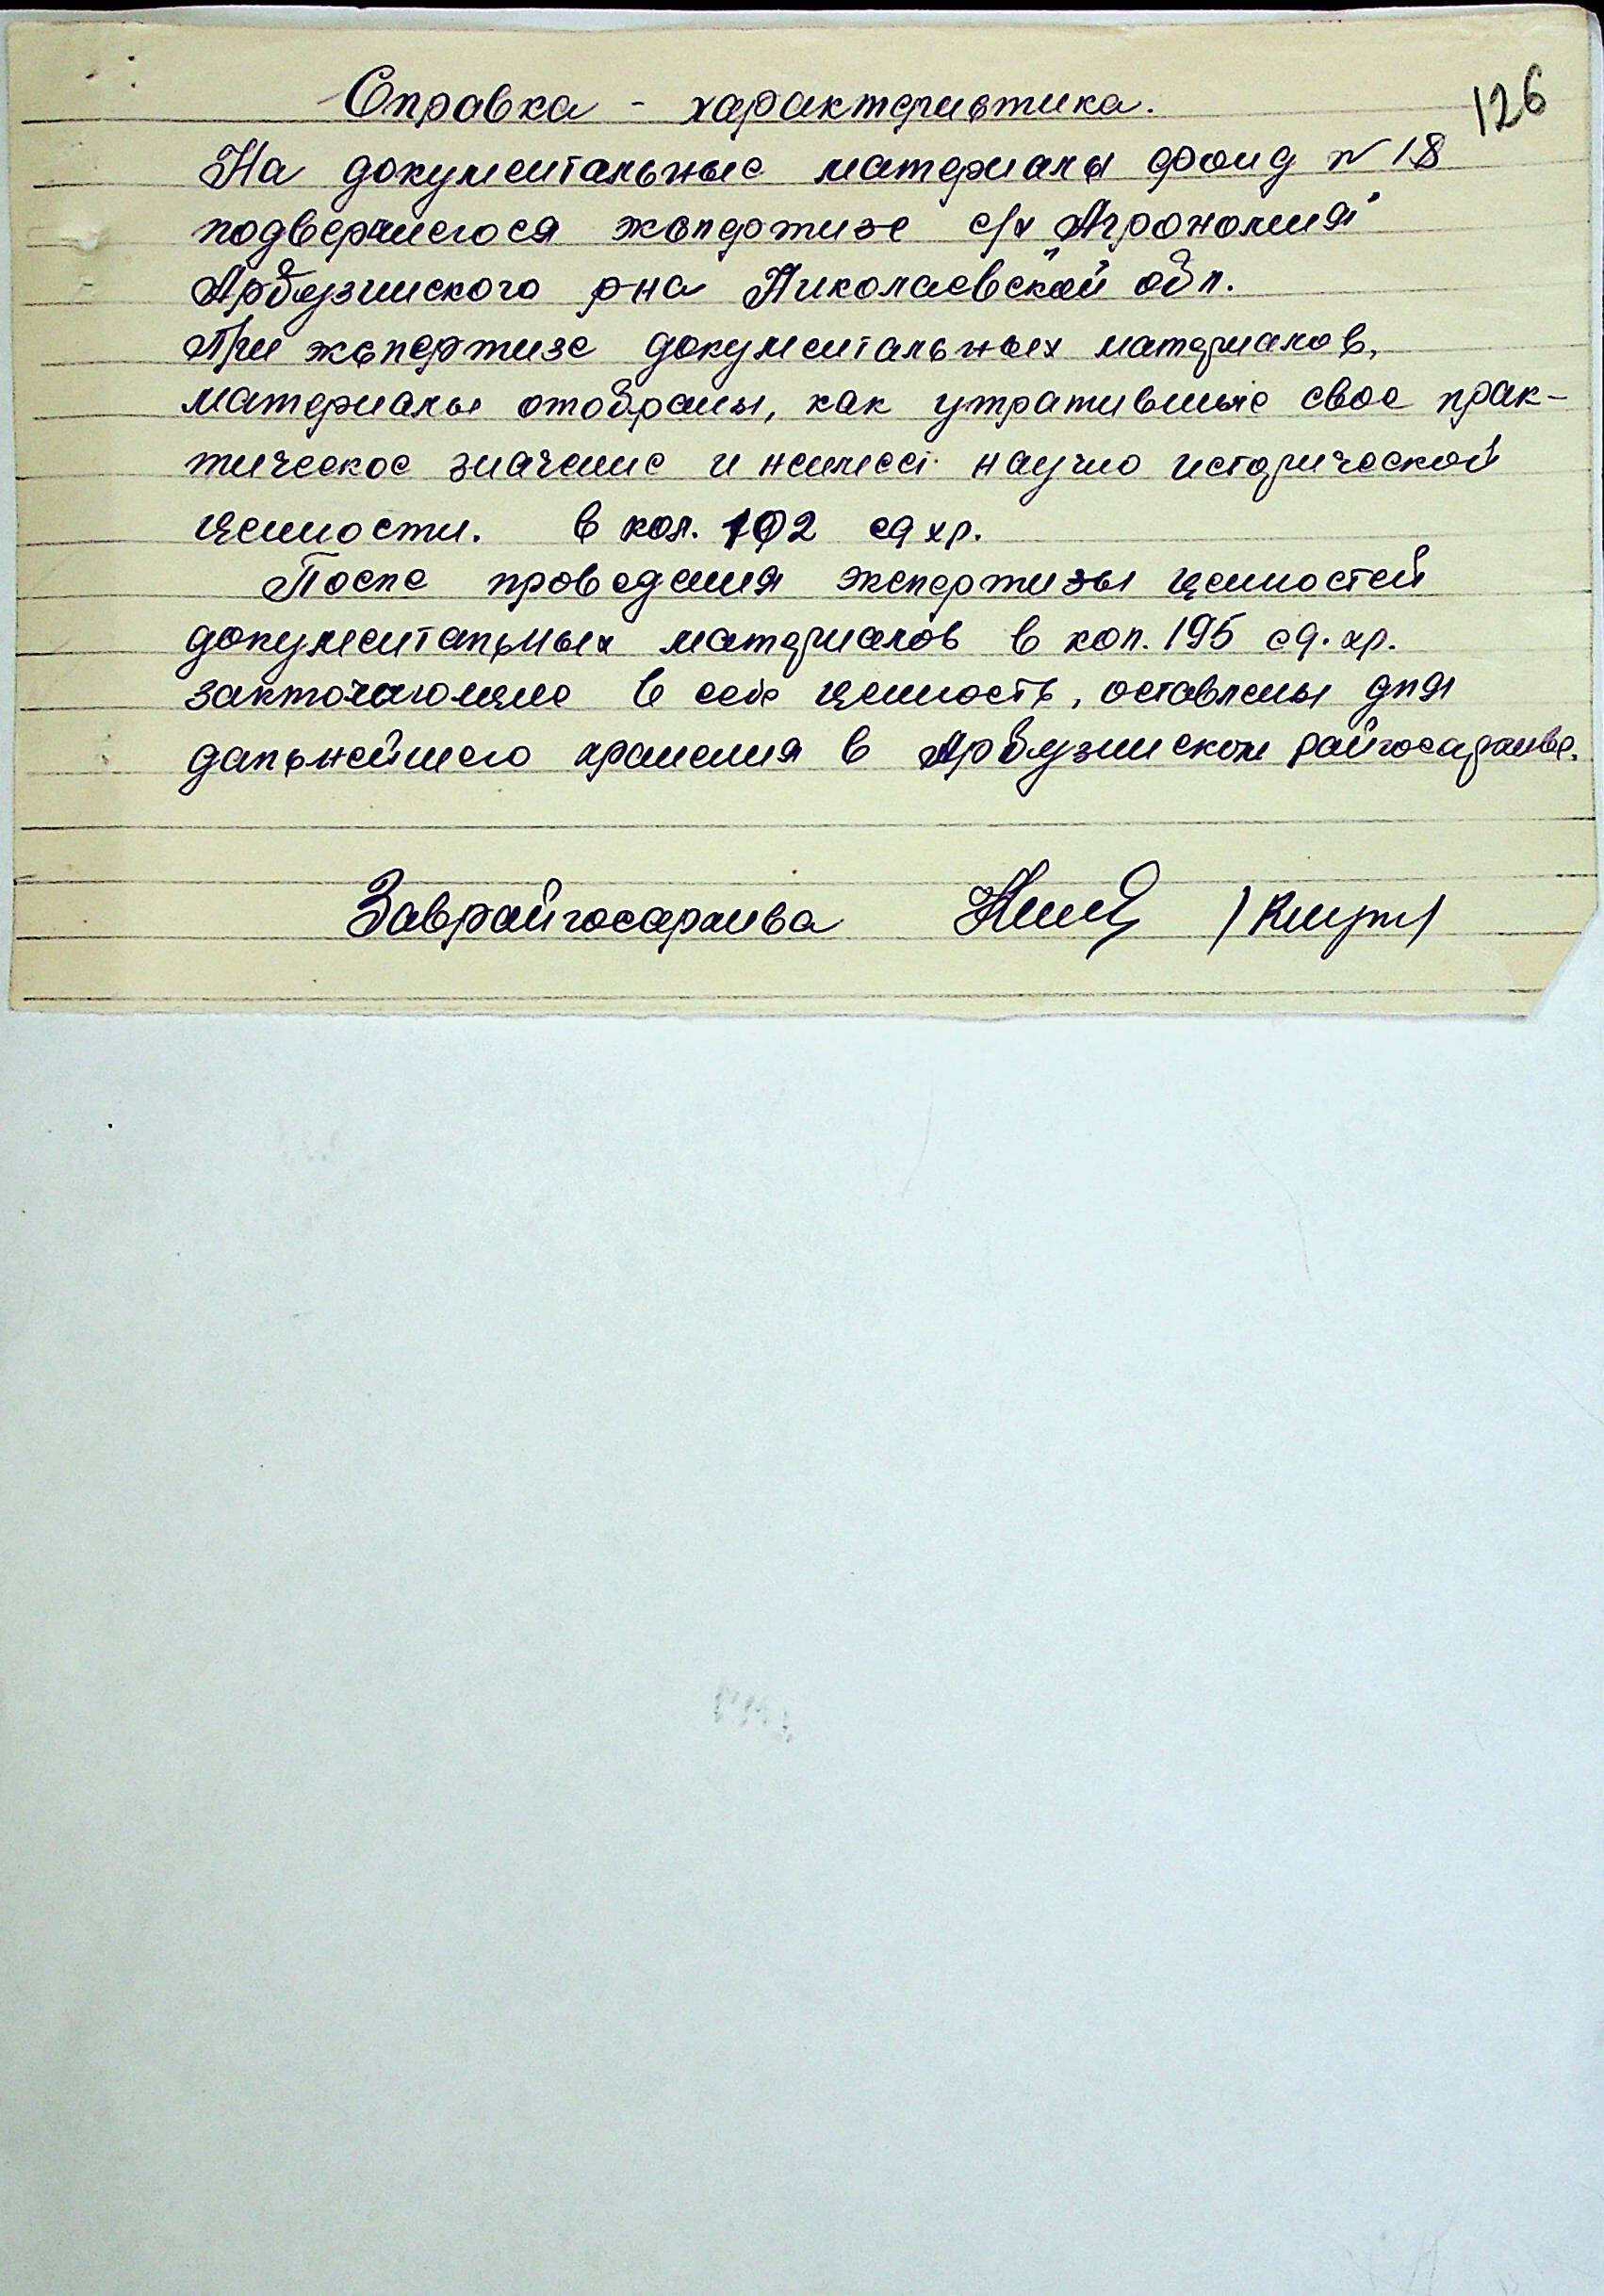 126
Справка - характеристика.
На документальные материалы фонд № 18
подвергшегося экспертизе с/х "Агрономия"
Арбузинского р-на Николаевской обл.
При экспертизе документальных материалов,
материалы отобраны, как утратившие свое прак-
тическое значение и неимеет научно исторической
ценности. в кол. 192 ед хр.
После проведения экспертизы ценностей
документальных материалов в кол. 195 ед. хр.
заключающие в себе ценность, оставлены для
дальнейшего хранения в Арбузинском райгосархиве.
Заврайгосархива